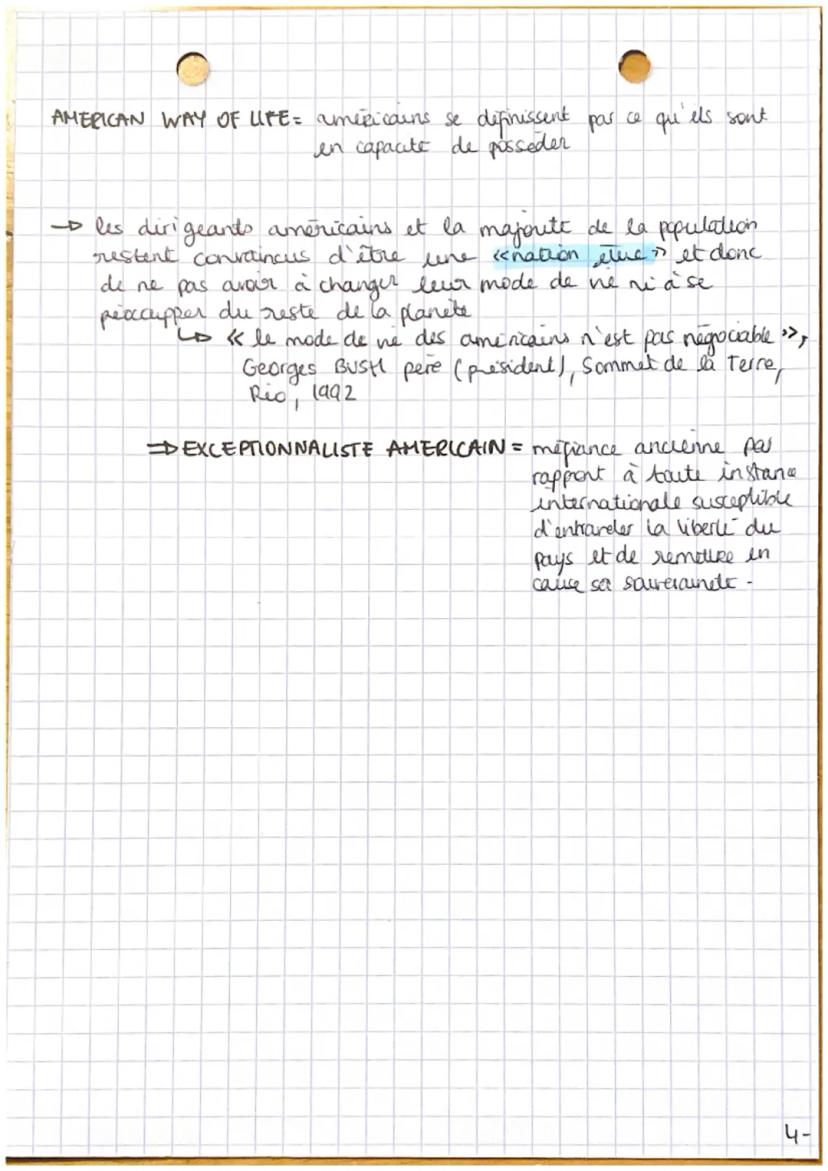 AMERICAN WAY OF LIFE = américains se définissent par ce qu'ils sont
en capacité de posséder
→ les dirigeants américains et la majorité de la population
restent convaincus d'être une «nation élue» et donc
de ne pas avoir à changer leur mode de vie ni à se
préoccupper du reste de la planète
↳ « le mode de vie des américains n'est pas négociable »,
Georges BUSH père (président), Sommet de la Terre,
Rio, 1992
⇒ EXCEPTIONNALISTE AMERICAIN = méfiance ancienne par
rapport à toute instance
internationale susceptible
d'entraver la liberté du
pays et de remettre en
cause sa souveraineté -
4-